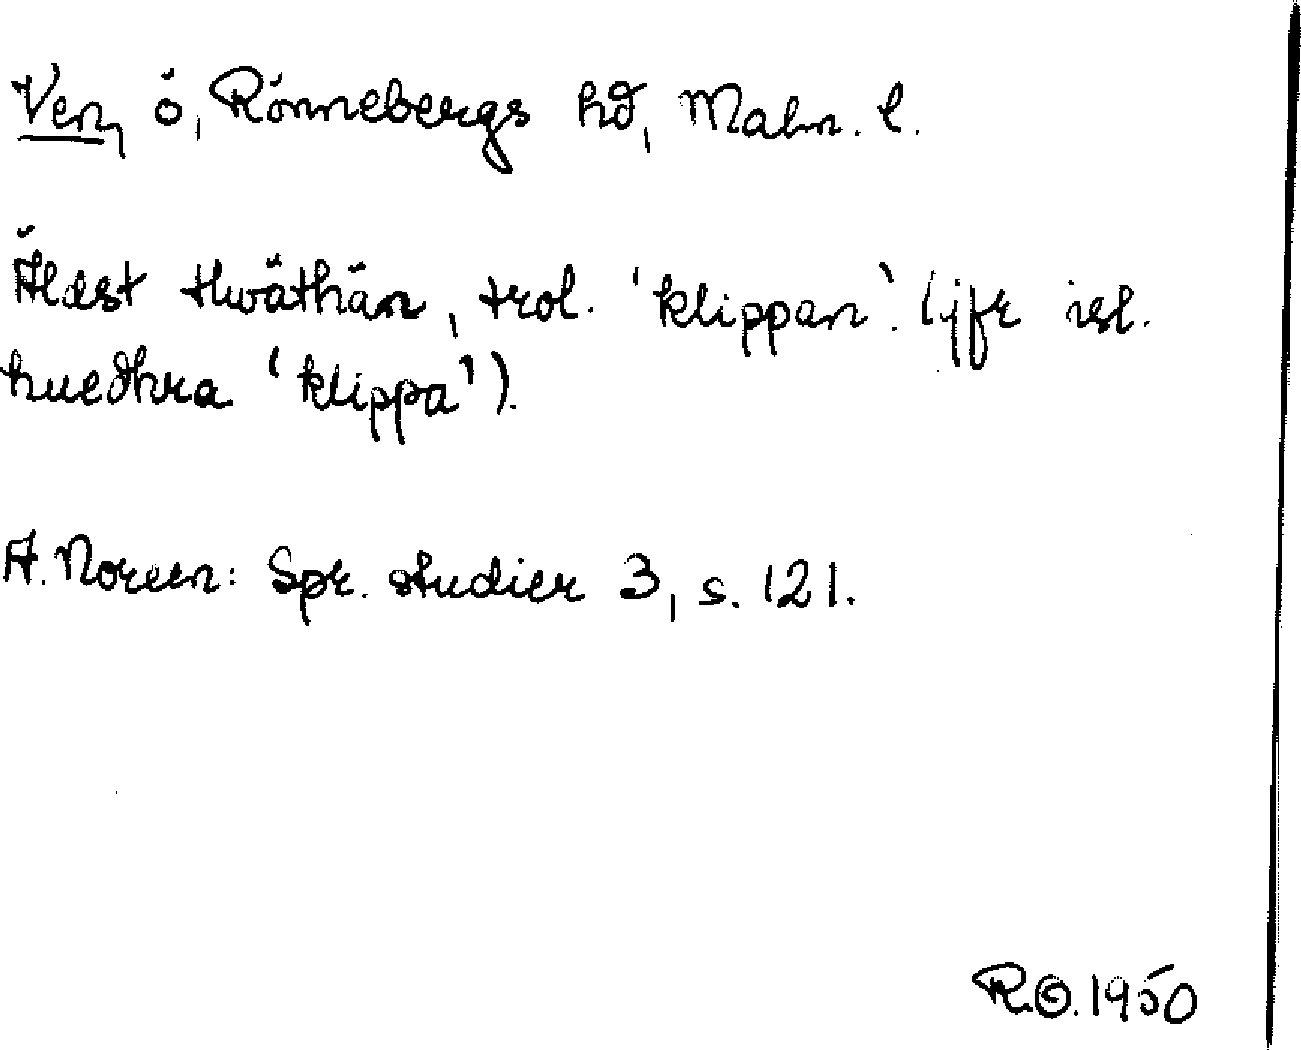 Ven, ö, Rönnebergs hd, Malm. l.
Äldst Hwäthän, trol. 'klippan'. (jfr isl.
huedhra 'klippa').
A. Noreen: Spr. studier 3, s. 121.
R.O. 1950